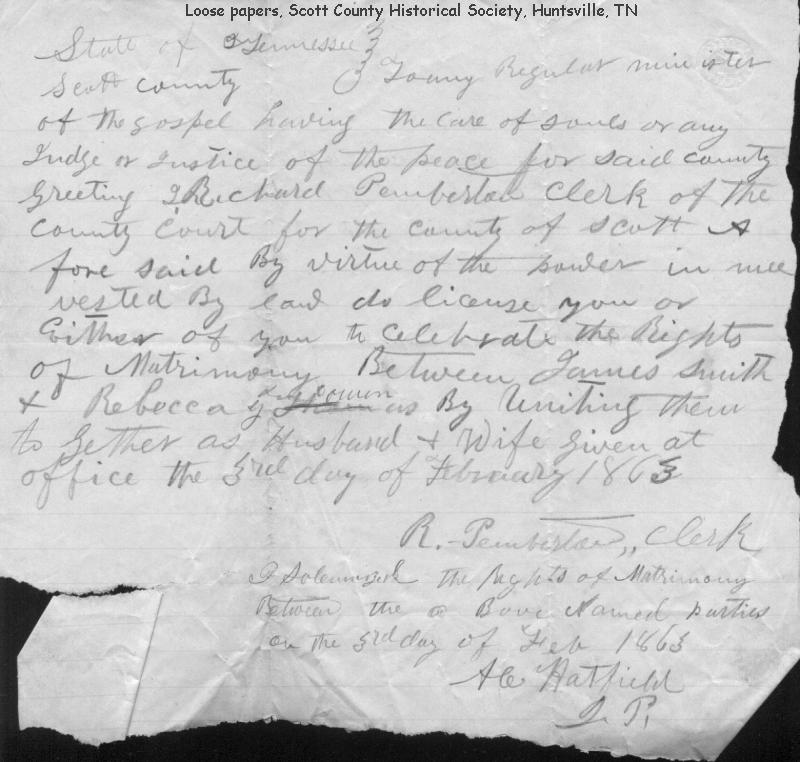 Loose papers, Scott County Historical Society, Huntsville, TN
State of Tennessee }
Scott county } To any Regular minister
of the gospel having the care of souls or any
Judge or Justice of the peace for said county
Greeting I Richard Pemberton Clerk of the
County Court for the county of Scott A
fore said By virtue of the power in mee
vested By Law do license you or
Either of you to Celebrate the Rights
of Matrimony Between James Smith
& Rebecca as By Uniting them
to Gether as Husband & Wife Given at
office the 3rd day of February 1863
R. Pemberton,, Clerk
I Solemnized the Rights of Matrimony
Between the a Bove Named parties
on the 3rd day of Feb 1863
AC Hatfield
J. P.